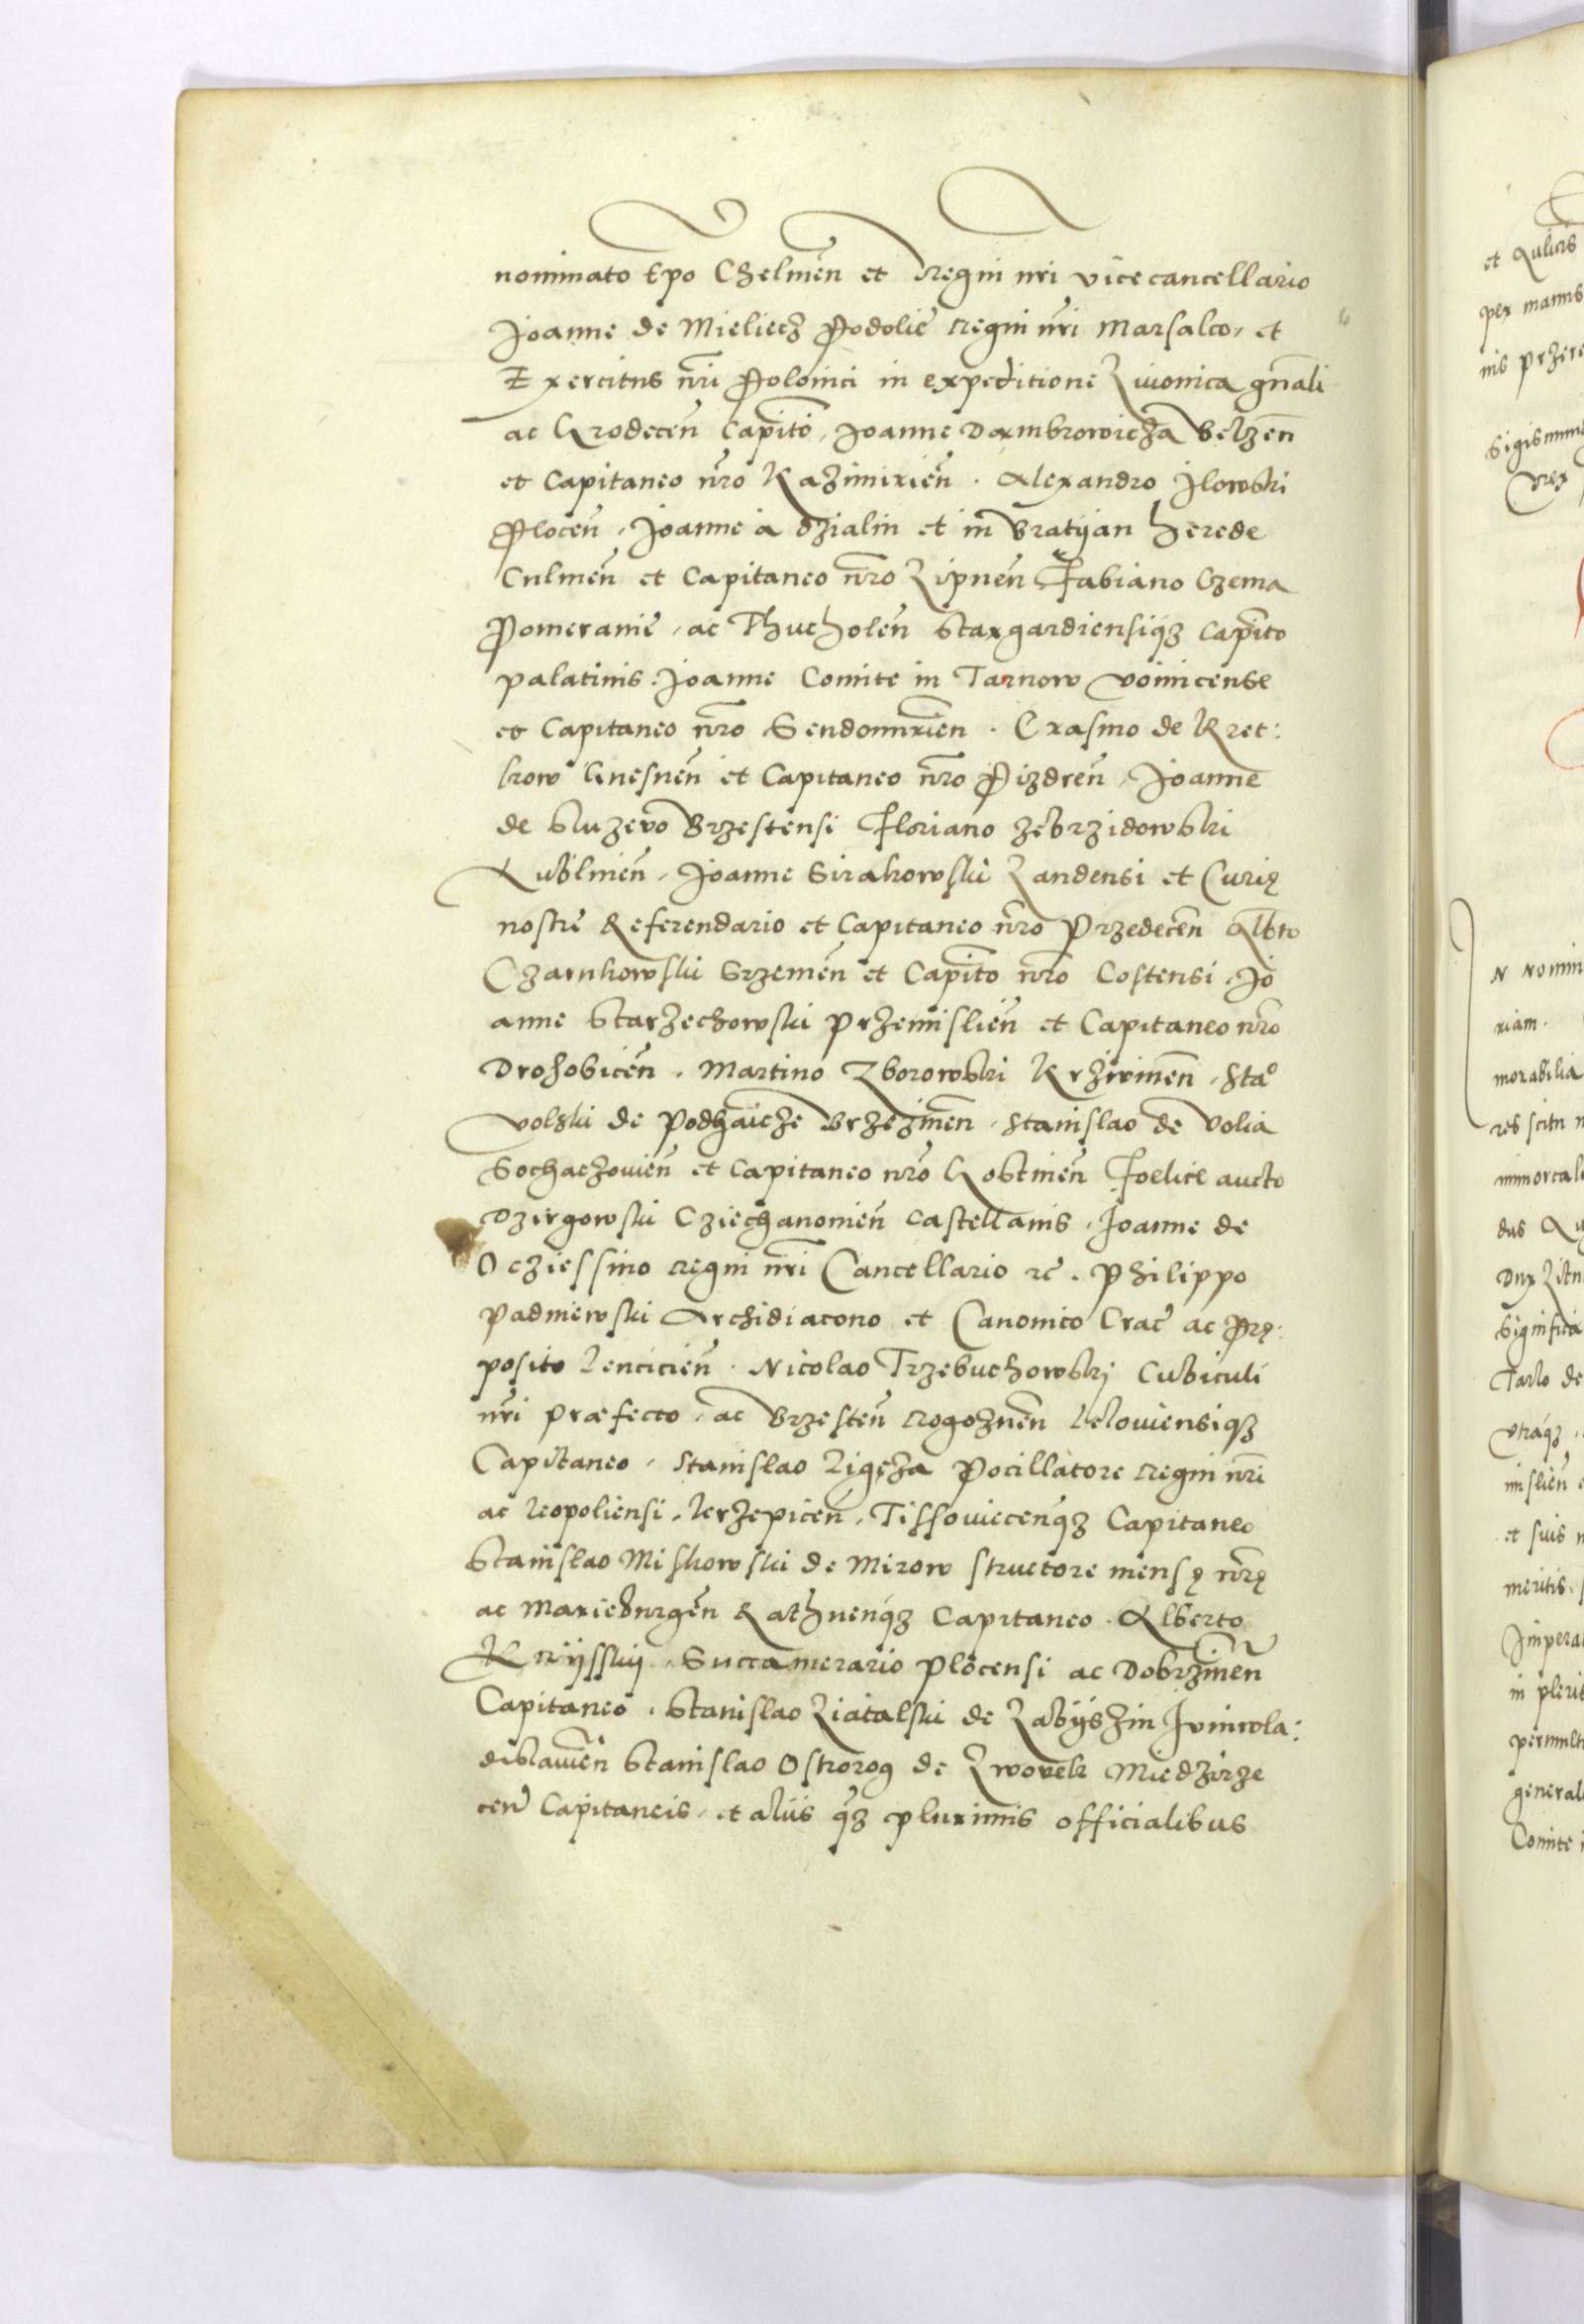 nominato Epo Chelmeñ et Regni nri vicecancellario
Joanne de Mieliecz Podolie Regni nri Marsalco, et
Exercitus nri Polonici in expeditione Livonica gnali
ac Grodeceñ Capito, Joanne Dambrowicza Belzeñ
et Capitaneo nro Kazimirieñ. Alexandro Ilowski
Ploceñ, Joanne á dzialin et in Bratijan herede
Culmeñ et Capitaneo nro Lipneñ Fabiano Czema
Pomeranie, ac Thucholeñ Stargardiensiqз Capito
palatinis. Joanne Comite in Tarnow voinicense
et Capitaneo nro Sendomirieñ. Erasmo de Kret:
kow Gnesneñ et Capitaneo nro Pizdreñ, Joanne
de Sluzewo Brzestensi Floriano Zebrzidowski
Lublineñ, Joanne Sirakowski Landensi et Curię
nostre Referendario et Capitaneo nro Przedeceñ Albto
Czarnkowski Srzemeñ et Capito nro Costensi, Jo
anne Starzechowski Przemislieñ et Capitaneo nro
Drohobiceñ. Martino Zborowski Krzivineñ, Stao
volski de Podhaicze Brzezineñ, Stanislao de Volia
Sochaczovieñ et Capitaneo nro Gostineñ Foelice aucto
Dzirgowski Cziechanovieñ castellanis, Joanne de
Ocziessino regni nri Cancellario rc. Philippo
Padniewski Archidiacono et Canonico Crac ac Prę:
posito Lencicieñ. Nicolao Trzebuchowskj Cubiculi
nri præfecto, ac Brzesteñ Rogozneñ Leloviensiqз
Capitaneo, Stanislao Ligęza Pocillatore regni nri
ac Leopoliensi, Krzepiceñ, Tissovieceñqз Capitaneo
Stanislao Miskowski de Mirow structore mensę nrę
ac Marieburgeñ Rathneñqз Capitaneo. Alberto
Krijsskij. Succamerario plocensi ac Dobrzineñ
Capitaneo, Stanislao Liatalski de Labijszin Ivniwla:
dislavieñ Stanislao Ostrorog de Lwowek Miedzirze
ceñ Capitaneis, et aliis qз plurimis officialibus